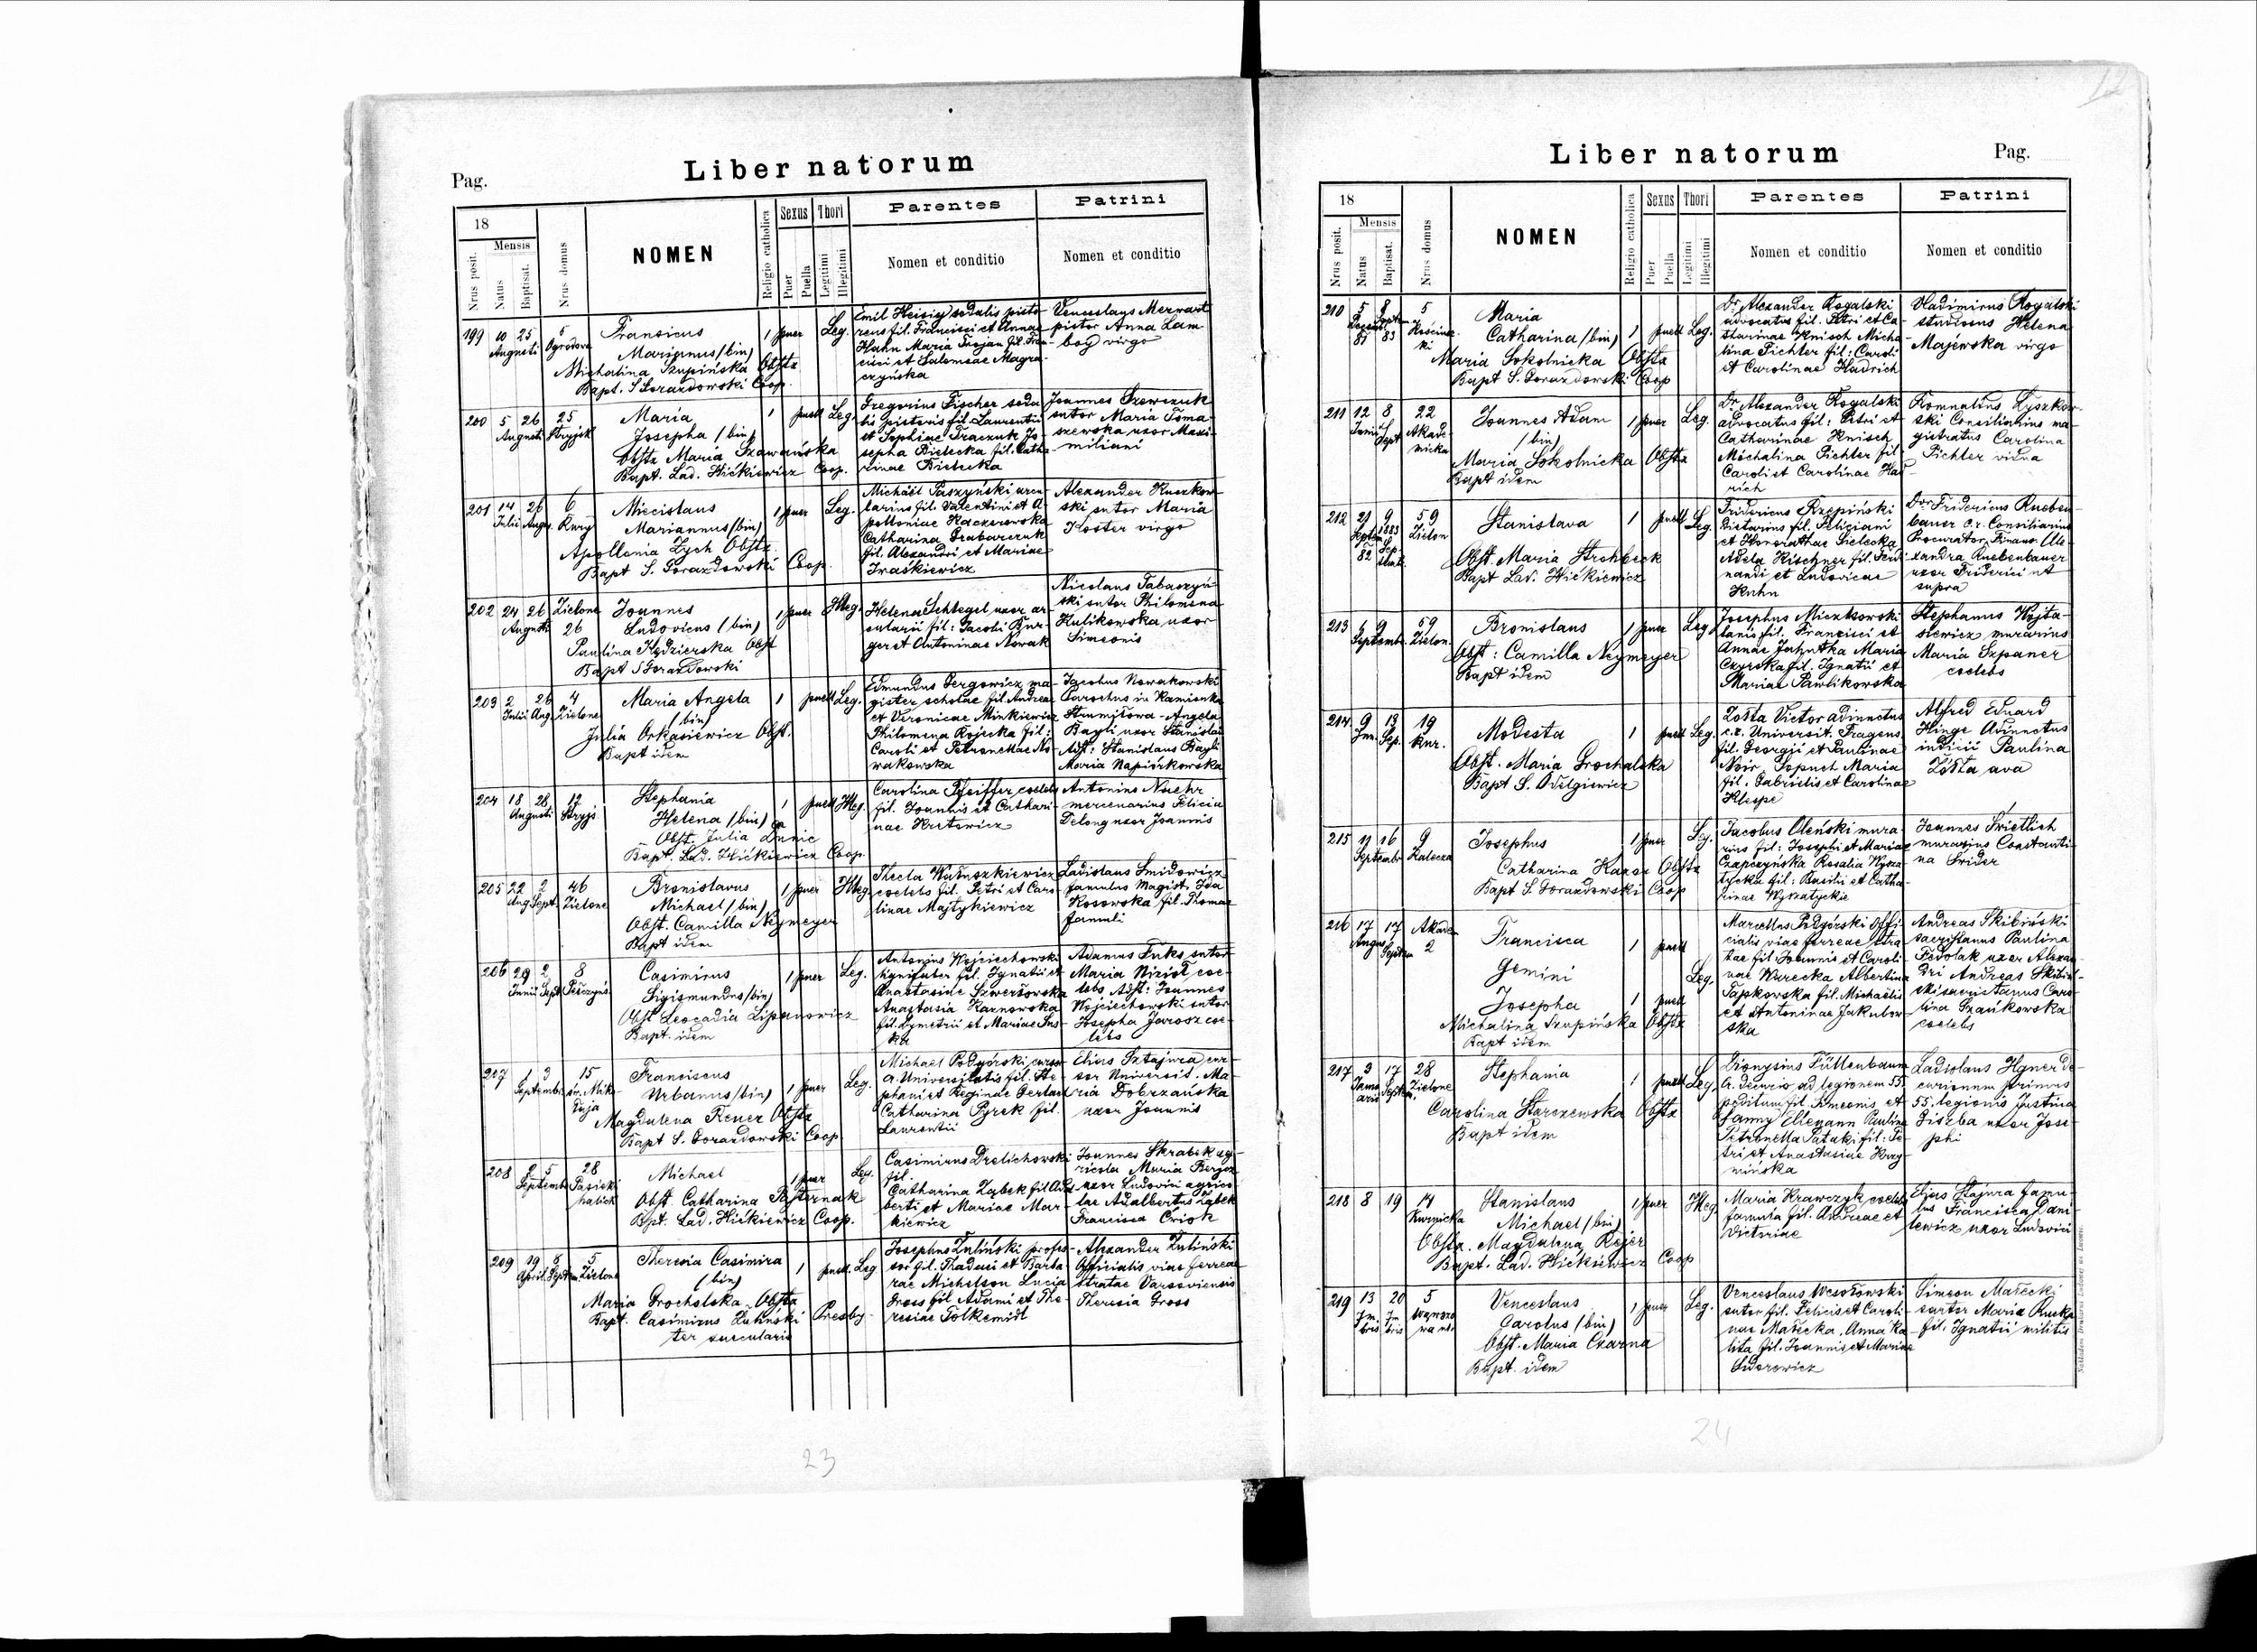 Liber natorum
Pag.
18
Mensis
Nrus posit.
Natus
Baptisat.
Nrus domus
NOMEN
Religio catholica
Sexus
Puer
Puella
Thori
Legitimi
Illegitimi
Parentes
Nomen et conditio
Patrini
Nomen et conditio
199 10 25 5
Augusti Ogrodowa
Marianus (bin)
Michalina Krupińska Obstx
Bapt. S Gorazdowski Coop.
1 puer Leg.
Hahn Maria Trojan fil. Fran-
cisci et Salomeae Magra-
czyńska
Venceslaus Merwart
pistor Anna Lam-
bog virgo
200 5 26 25
Augusti Stryjsk
Maria
Josepha (bin)
Bapt. Lad. Hićkiewicz Coop.
1 puell Leg.
Gregorius Fischer soda-
lis pistoris fil. Laurentii
et Sophiae Traczuk Jo-
sepha Bielecka fil. Catha-
rinae Bielecka
Joannes Szewczuk
sutor Maria Toma-
szewska uxor Maxi-
miliani
201 14 26 6
Julii Aug. Kurg
Miecislaus
Mariannus (bin)
Apollonia Zych Obstx
Bapt S. Gorazdowski Coop.
1 puer Leg.
Michael Paszyński
larius fil. Valentini et A-
polloniae Kaczurowska
Catharina Grabarczuk
fil. Alexandri et Mariae
Iraśkiewicz
Alexander Kruszkow-
ski sutor Maria
Koster virgo
202 24 26 Zielone
Augusti 26
Joannes
Ludovicus (bin)
Paulina Kędzierska Obst
Bapt S Gorazdowski
1 puer Illeg.
Helena Schlegel uxor ar-
cularii fil: Jacobi Bur-
ger et Antoninae Nowak
Nicolaus Tabaszyń-
ski sutor Philomena
Kulikowska uxor
Simeonis
203 2 26 4
Julii Aug. Zielone
Maria Angela
(bin)
Julia Orkasiewicz Obst.
Bapt idem
1 puell Leg.
Edmundus Gergowicz ma-
gister scholae fil. Andreae
et Veronicae Minkiewicz
Philomena Rojecka fil:
Caroli et Petronellae No-
wakowska
Jacobus Nowakowski
Parochus in Kamionka
Strumiłowa - Angela
Bayli uxor Stanislai
Adst: Stanislaus Bayli
Maria Napiórkowska
204 18 28 17
Augusti Stryjs.
Stephania
Helena (bin)
Obst. Julia Dunic
Bapt. Lad. Hićkiewicz Coop.
1 puell Illeg.
Carolina Pfeiffer coelebs
fil. Joannis et Cathari-
nae Krutowicz
Antonius Nuehr
mercenarius Felicia
Delong uxor Joannis
205 22 2 46
Aug. Sept. Zielone
Bronislavus
Michael (bin)
Obst. Camilla Neymeyer
Bapt idem
1 puer Illeg.
coelebs fil. Petri et Caro-
linae Majtykiewicz
Ladislaus Smidowicz
famulus Magist. Ida
Kosowska fil. Thomae
famuli
206 29 2 8
Junii Sept. Pełczyńs.
Casimirus
Sigismundus (bin)
Obst Leocadia Lipanowicz
Bapt. idem
1 puer Leg.
Antonius Wojciechowski
lignifaber fil. Ignatii et
Anastasiae Szwertowska
Anastasia Karnowska
fil. Dymetrii et Mariae
Adamus Fuks sutor
Maria Niziol coe-
lebs Adst: Joannes
Wojciechowski sutor
Josepha Jarosz coe-
lebs
207 1 3 15
Septembr. św. Miko-
łaja
Franciscus
Urbanus (bin)
Magdalena Rener Obstx
Bapt S. Gorazdowski Coop
1 puer Leg.
Michael Podgórski cursor
Universitatis fil. Ste-
phani et Reginae
Catharina Pyrek fil.
Laurentii
Elias Sztajura cur-
sor Universit. Ma-
ria Dobrzańska
uxor Joannis
208 2 5 28
Septembr. Pasieki
halick
Michael
Obst Catharina Pasternak
Bpt. Lad. Hićkiewicz Coop.
1 puer Leg.
Casimirus Drelichowski
fil.
Catharina Ząbek fil Adal-
berti et Mariae Mar-
kiewicz
Joannes Skrabek ag-
ricola Maria
uxor Ludovici agrico-
lae Adalbertus Ząbek
Francisca
209 19 8 5
April. Septem Zielone
Theresia Casimira
(bin)
Maria Grocholska Obstx
Bapt. Casimirus Żuliński Presby-
ter saecularis
1 puell. Leg
Josephus Żuliński profes-
sor fil. Thadaei et Barba-
rae Michelson Lucia
Gross fil Adami et The-
resiae Tolkemidt
Alexander Żuliński
Officialis viae ferreae
stratae Varsoviensis
Theresia Gross
23
Liber natorum
Pag.
18
Mensis
Nrus posit.
Natus
Baptisat.
Nrus domus
NOMEN
Religio catholica
Sexus
Puer
Puella
Thori
Legitimi
Illegitimi
Parentes
Nomen et conditio
Patrini
Nomen et conditio
210 5 8 5
81 83
Maria
Catharina (bin)
Maria Sokolnicka Obstx
Bapt S. Gorazdowski Coop
1 puell Leg.
Dr. Alexander Rogalski
advocatus fil. Petri et Ca-
tharinae Knisch Micha-
lina Pichter fil: Caroli
et Carolinae Hadrich
Vladimirus Rogalski
studiosus Helena
Majewska virgo
211 12 8 22
Junii Sept Akade-
micka
Joannes Adam
(bin)
Maria Sokolnicka Obstx
Bapt idem
1 puer Leg.
Dr. Alexander Rogalski
advocatus fil: Petri et
Catharinae Knisch
Michalina Pichter fil
Caroli et Carolinae Had-
rich
Romualdus Łyszkow-
ski Consiliarius ma-
gistratus Carolina
Pichter vidua
212 21 9 59
82 1883 Zielon
Stanislava
Obst. Maria Strohbeck
Bapt Lad. Hićkiewicz
1 puell Leg.
Fridericus Krzepiński
fil. Feliciani
et Honorathae Sielecka
Adela Kischner fil. Ferdi-
nandi et Ludovicae
Kuhn
Dor Fridericus Rueben-
bauer c.r. Consiliarius
Procurator. Finans. Ale-
xandra Ruebenbauer
uxor Friderici ut
supra
213 4 9 59
Septembr. Zielon.
Bronislaus
Obst: Camilla Neymeyer
Bapt idem
1 puer Leg
Josephus Miczkowski
lanis fil. Francisci et
Annae Jahutka Maria
Czyrska fil. Ignatii et
Mariae Pawlikowska
Stephanus Wojta-
siewicz murarius
Maria Szpaner
coelebs
214 9 13 19
Jun. Sep. Kur.
Modesta
Obst. Maria Grochalska
Bapt S. Odelgiewicz
1 puell Leg.
Zosta Victor adiunctus
c.r. Universit. Fragens
fil. Georgii et Paulinae
Noir Sopuch Maria
fil. Gabrielis et Carolinae
Klespe
Alfred Eduard
Hinge Adiunctus
indicii Paulina
Zosta ava
215 11 16 9
Septembr
Josephus
Catharina Kanar Obstx
Bapt S. Gorazdowski Coop
1 puer Leg.
Jacobus Oleński mura-
rius fil: Josephi et Mariae
Czapczyńska Rosalia Wysza-
tycka fil: Basilii et Catha-
rinae Wyszatyckie
Joannes Swietlich
murarius Constanti-
na Swider
216 17 17 Akade
August Septem 2
Francisca
Gemini
Josepha
Michalina Krupińska Obstx
Bapt idem
1 puell
Leg.
1 puell
Marcellus Podgórski Offi-
cialis viae ferreae stra-
tae fil Joannis et Caroli-
nae Warecka Albertina
Tapkowska fil. Michaelis
et Antoninae Jakubow-
ska
Andreas Skibiński
sacristianus Paulina
Fedolak uxor Alexan-
dri Andreas Skibiń-
ski sacristanus Caro-
lina Szańkowska
coelebs
217 3 17 28
Janu-
arii Septem. Zielone
Stephania
Carolina Starczewska Obstx
Bapt idem
1 puell Leg
Dionysius Füllenbaum
c. decurio ad legionem 55
peditum fil. Simeonis et
Fanny Ellemann Paulina
Petronella Pataki fil: Pe-
tri et Anastasiae
wińska
Ladislaus Hgner de-
curionum primus
55. legionis Justina
Giszba uxor Jose-
phi
218 8 19 14
Kurnicka
Stanislaus
Michael (bin)
Obstx. Magdalena Rejer
Bapt. Lad. Hićkiewicz Coop
1 puer Illeg.
Maria Krawczyk coelebs
famula fil. Andreae et
Victoriae
Elias Stajura famu-
lus Francisca Dani-
lewicz uxor Ludovici
219 13 20 5
Venceslaus
Carolus (bin)
Obst. Maria Czarna
Bapt. idem
1 puer Leg.
Venceslaus Wesołowski
sutor fil. Felicis et Caroli-
nae Małecka. Anna Ka-
lita fil. Joannis et Mariae
Sidorowicz
Simeon Małecki
sartor Maria Rucka
fil. Ignatii militis
24